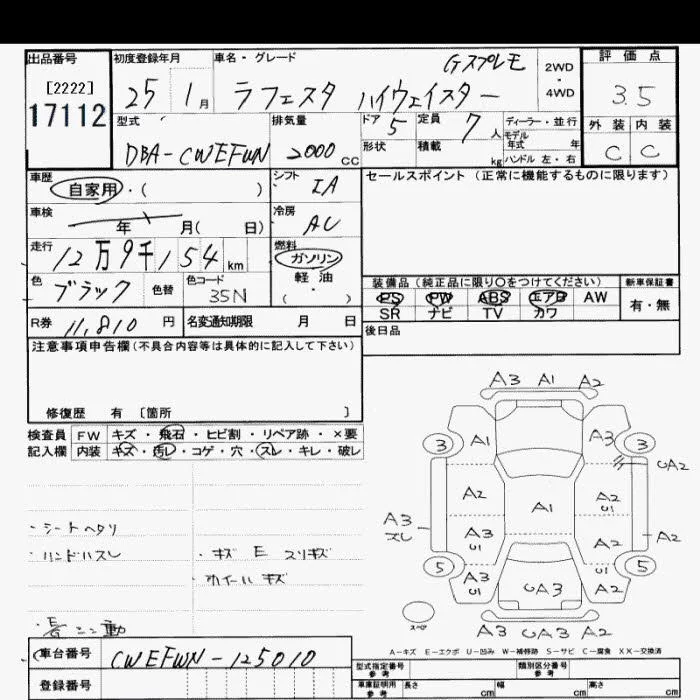 出品番号
[2222]
17112
初度登録年月
25 1月
車名・グレード
Gスプレモ
ラフェスタ ハイウェイスター
2WD
・
4WD
評価点
3.5
型式
DBA-CWEFWN
排気量
2000 CC
ドア 5
定員 7人
形状
積載 kg
ディーラー・並行
モデル年式 年
ハンドル 左・右
外装 内装
C C
車歴
自家用・( )
シフト IA
セールスポイント (正常に機能するものに限ります)
車検
年 月( 日)
冷房 AC
走行
12万9千154 km
燃料
ガソリン
軽油
・
( )
色 ブラック
色替
色コード
35N
装備品 (純正品に限り○をつけてください)
新車保証書
PS PW ABS エアB AW
SR ナビ TV カワ
有・無
R券 11,810 円
名変通知期限 月 日
後日品
注意事項申告欄 (不具合内容等は具体的に記入して下さい)
修復歴 有 〔箇所 〕
検査員記入欄
FW キズ・飛石・ヒビ割・リペア跡・×要
内装 キズ・汚レ・コゲ・穴・スレ・キレ・破レ
・シートヘタリ
・ハンドルスレ
・キズ E スリキズ
ホイールキズ
A3 A1 A2
3 A1 A3 3
UA2
A2 A1 A2
U1
A3
スレ
A3
U1
A2
U1
A2
5 A3
U1
UA3 A2 5
スペア
A3 UA3 A2
A-キズ E-エクボ U-凹み W-補修跡 S-サビ C-腐食 XX-交換済
車台番号
CWEFWN-125010
登録番号
型式指定番号
参考
類別区分番号
参考
車庫証明用
参考
長さ cm 幅 cm 高さ cm